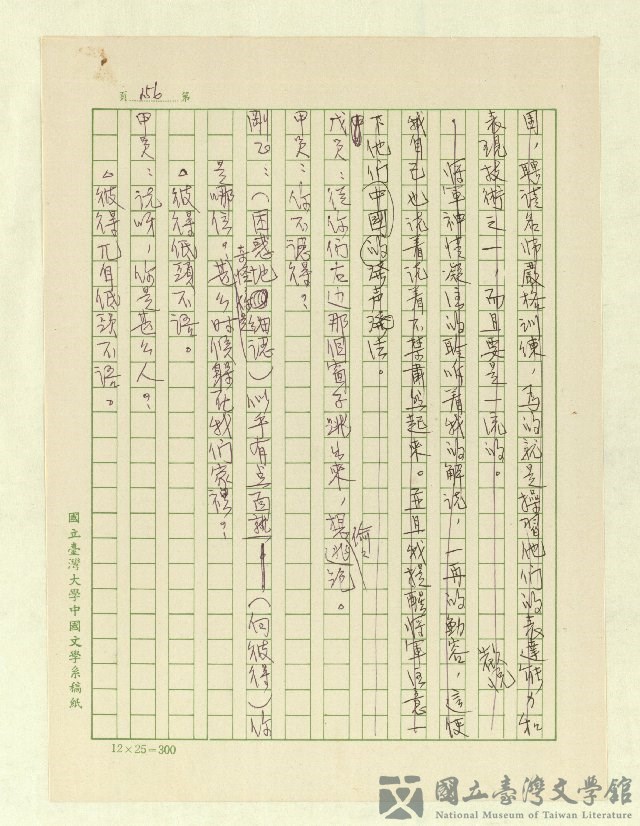 第 156 頁
團，聘請名師嚴格訓練，為的就是操習他們的表達能力和
表現技術之一，而且要是一流的。
歡悅
，將軍神情凝注的聆听着我的解說，一再的動容，這使
我自己也说着说着不禁肅然起來。並且我提醒將軍注意一
下他們中國的
法。
戊員：從你們右边那個窗子跳出來，
偷
甲員：你不認得？
剛正：（困惑地細認）似乎有点面熟——（向彼得）你
奇怪
是哪位。甚么时候躲在我們家裡？
△彼得低頭不語。
甲員：说呀，你是甚么人？
△彼得兀自低頭不語。
國立臺灣大學中國文學系稿紙
12×25=300
國立臺灣文學館
National Museum of Taiwan Literature